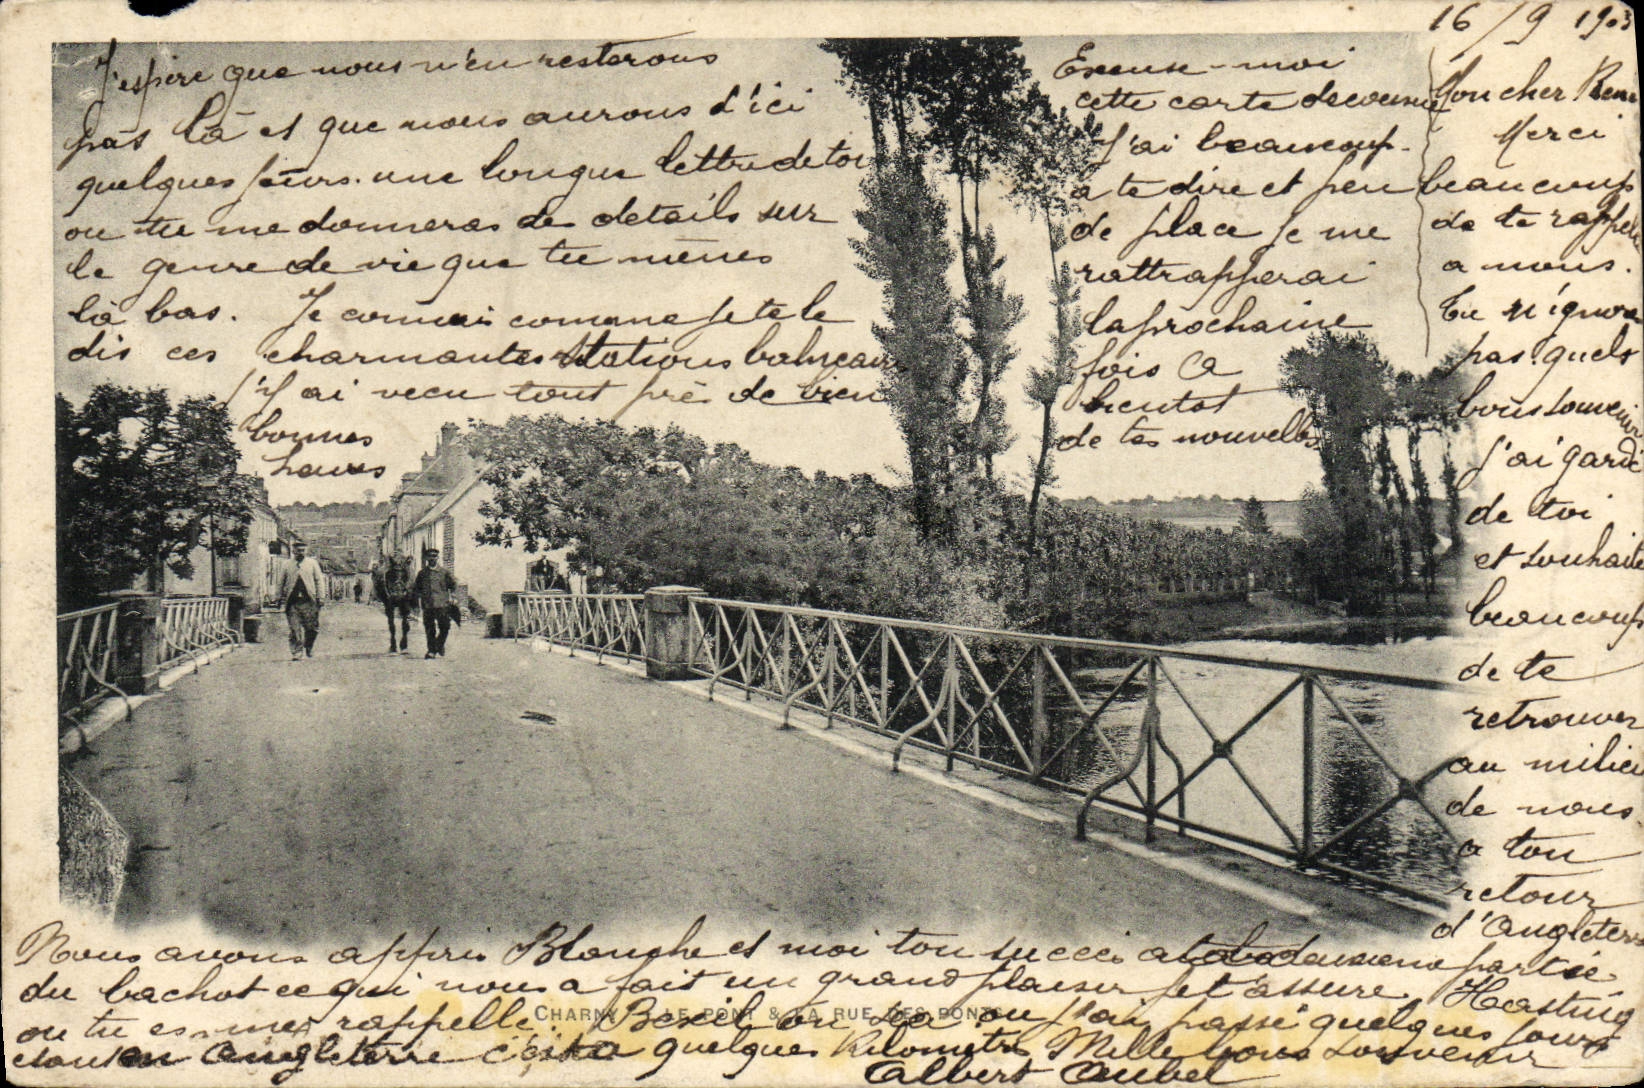 16/9 1903
Mon cher René
Merci
beaucoup
de te rappeler
a nous.
Tu n'ignore
pas quels
bons souvenirs
j'ai gardé
de toi
et souhaite
beaucoup
de te
retrouver
au milieu
de nous
a ton
retour
d'Angleterre
Nous avons appris Blanche et moi ton succès a la deuxieme partie
du bachot ce qui nous a fait un grand plaisir je t'assure. Hasting
ou tu es me rappelle Bexil on Sea ou j'ai passé quelques jours
etant en Angleterre c'est a quelques kilometres Mille bons souvenirs
Albert Aubel
J'espère que nous n'en resterons
pas là et que nous aurons d'ici
quelques jours une longue lettre de toi
ou tu me donneras des details sur
le genre de vie que tu mènes
là bas. Je connais comme je te le
dis ces charmantes stations balneaires
j'y ai vecu tout près de bien
bonnes
heures
Excuse-moi
cette carte decousue
J'ai beaucoup
a te dire et peu
de place je me
rattrapperai
la prochaine
fois A
bientot
de tes nouvelles
CHARNY - LE PONT & LA RUE DES PONTS